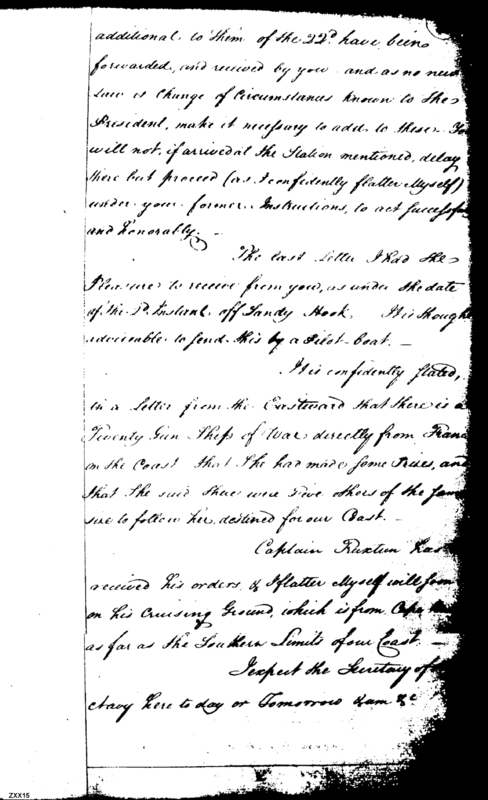 additional to them of the 22d. have been
forwarded, and received by you and as no new
Law or Change of Circumstances known to the
President, make it necessary to add to these. You
will not, if arrived at the Station mentioned, delay
there but proceed (as I confidently flatter Myself)
under your former Instructions, to act successfully
and honorably.
The last Letter I had the
Pleasure to receive from you, is under the date
of the Instant off Sandy Hook. It is thought
adviseable to send this by a Pilot-boat. —
It is confidently stated,
in a Letter from the Eastward that there is a
Twenty Gun Ship of War directly from France
on the Coast that She had made some Prizes, and
that She said there were Five others of the same
size to follow her, destined for our Coast. —
Captain Truxtun has
received his orders, & I flatter Myself will soon
on his Cruising Ground, which is from Cape
as far as the Southern Limits of our Coast. —
I expect the Secretary of
Navy here to day or Tomorrow & am &c
ZXX15